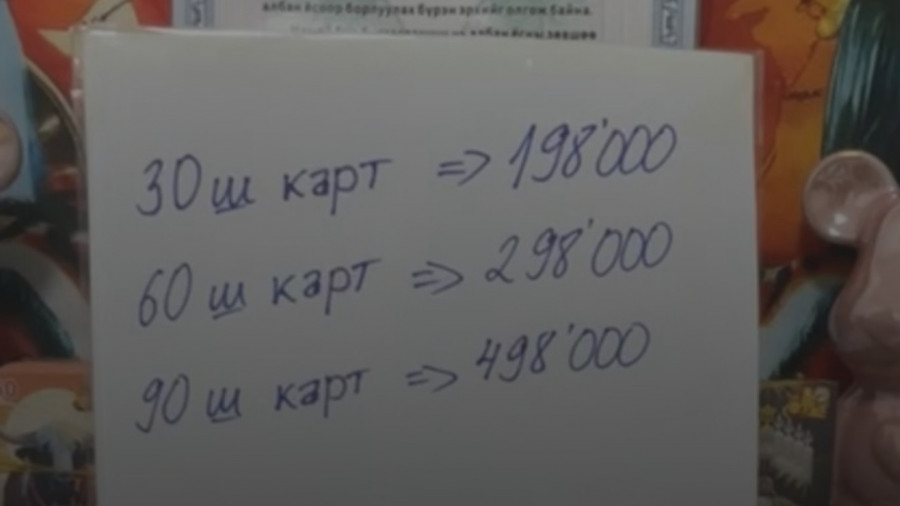 албан ёсоор борлуулах бүрэн эрхийг олгож байна.
албан ёсны зөвшөө
30 ш карт => 198'000
60 ш карт => 298'000
90 ш карт => 498'000